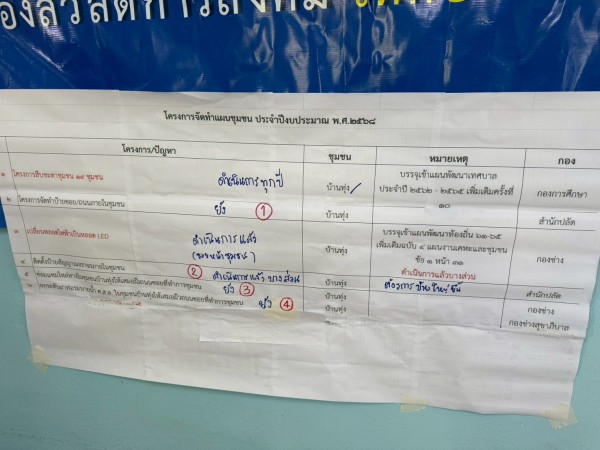 องสวัสดิการสังคม
โครงการจัดทำแผนชุมชน ประจำปีงบประมาณ พ.ศ.๒๕๖๘
โครงการ/ปัญหา ชุมชน หมายเหตุ กอง
๑ โครงการสืบชะตาชุมชน ๑๙ ชุมชน ดำเนินการทุกปี บ้านทุ่ง บรรจุเข้าแผนพัฒนาเทศบาล ประจำปี ๒๕๖๒ - ๒๕๖๕ เพิ่มเติมครั้งที่ ๑๐ กองการศึกษา
๒ โครงการจัดทำป้ายซอย/ถนนภายในชุมชน ยัง ① บ้านทุ่ง สำนักปลัด
๓ เปลี่ยนหลอดไฟฟ้าเป็นหลอด LED ดำเนินการแล้ว บ้านทุ่ง บรรจุเข้าแผนพัฒนาท้องถิ่น ๖๑-๖๕ เพิ่มเติมฉบับ ๔ แผนงานเคหะและชุมชน ข้อ ๑ หน้า ๓๑ กองช่าง
ดำเนินการแล้วบางส่วน
๔ ติดตั้งป้ายสัญญาณจราจรภายในชุมชน ② ดำเนินการแล้ว บางส่วน บ้านทุ่ง ต้องการป้ายใหญ่ขึ้น สำนักปลัด
๕ ยัง ③ บ้านทุ่ง กองช่าง
ยัง ④ บ้านทุ่ง กองช่างสุขาภิบาล